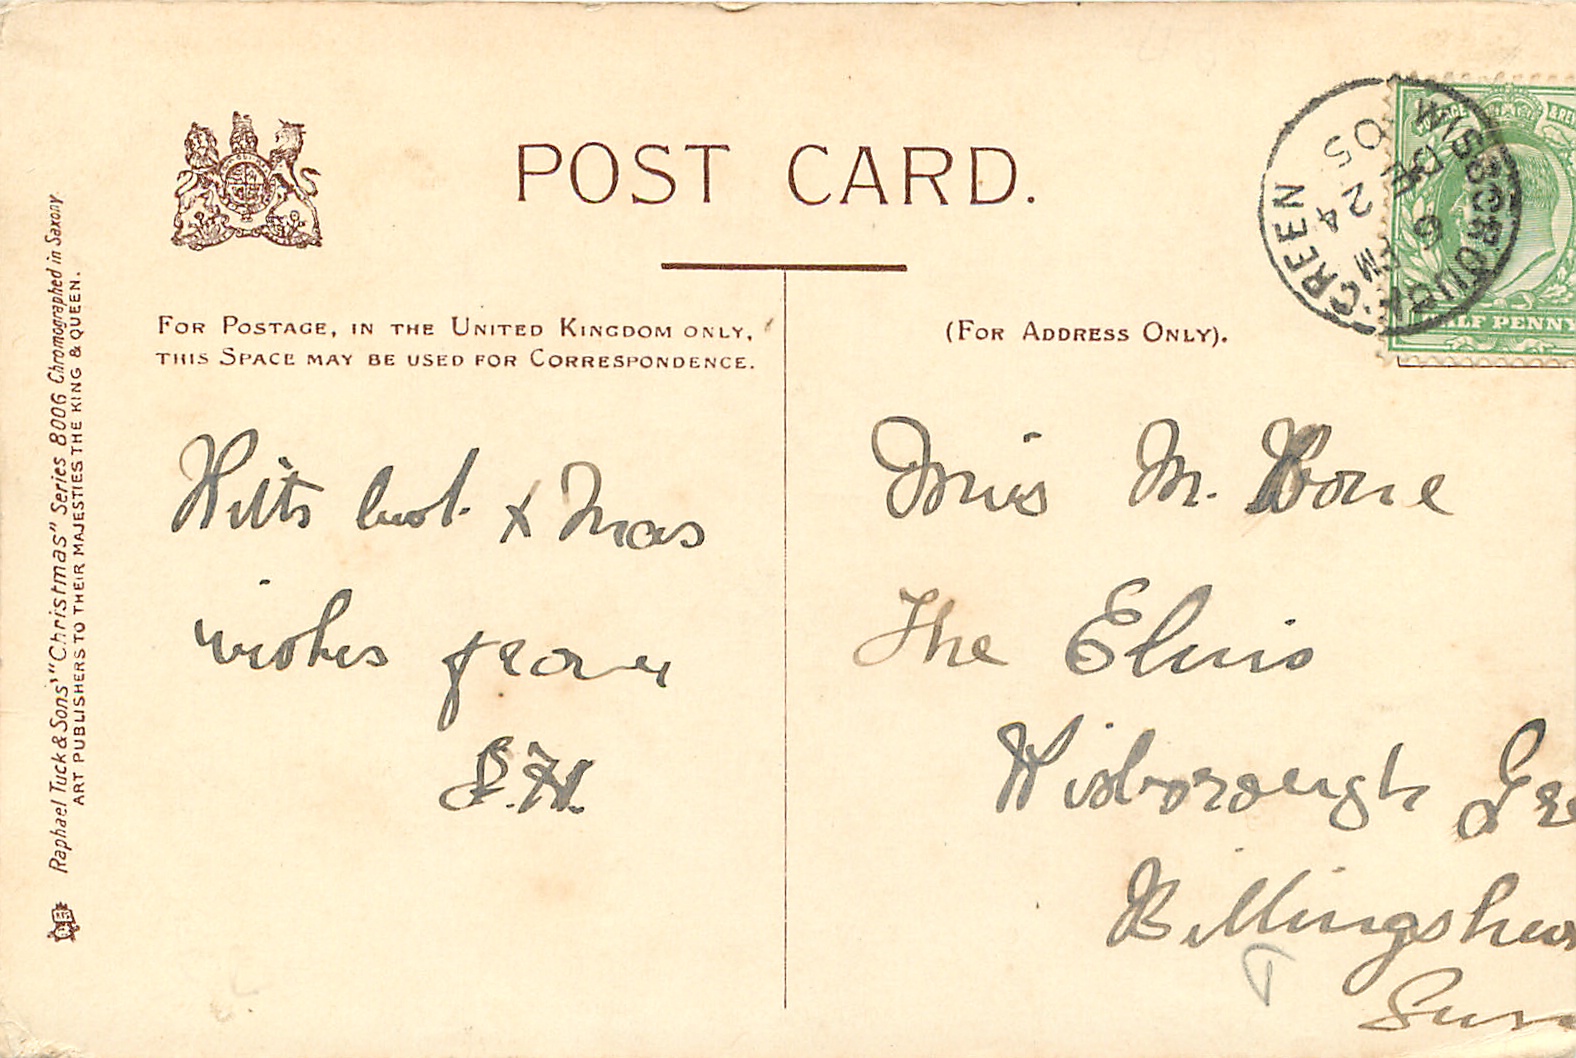 POST CARD.
FOR POSTAGE, IN THE UNITED KINGDOM ONLY,
THIS SPACE MAY BE USED FOR CORRESPONDENCE.
(FOR ADDRESS ONLY).
WISBOROUGH GREEN
6 PM
DE 24
05
POSTAGE & RE
HALF PENNY
With best XMas
wishes from
Miss M. Bone
The Elms
Wisborough Gre
Billingshur
Sus
Raphael Tuck & Sons' "Christmas" Series 8006 Chromographed in Saxony.
ART PUBLISHERS TO THEIR MAJESTIES THE KING & QUEEN.